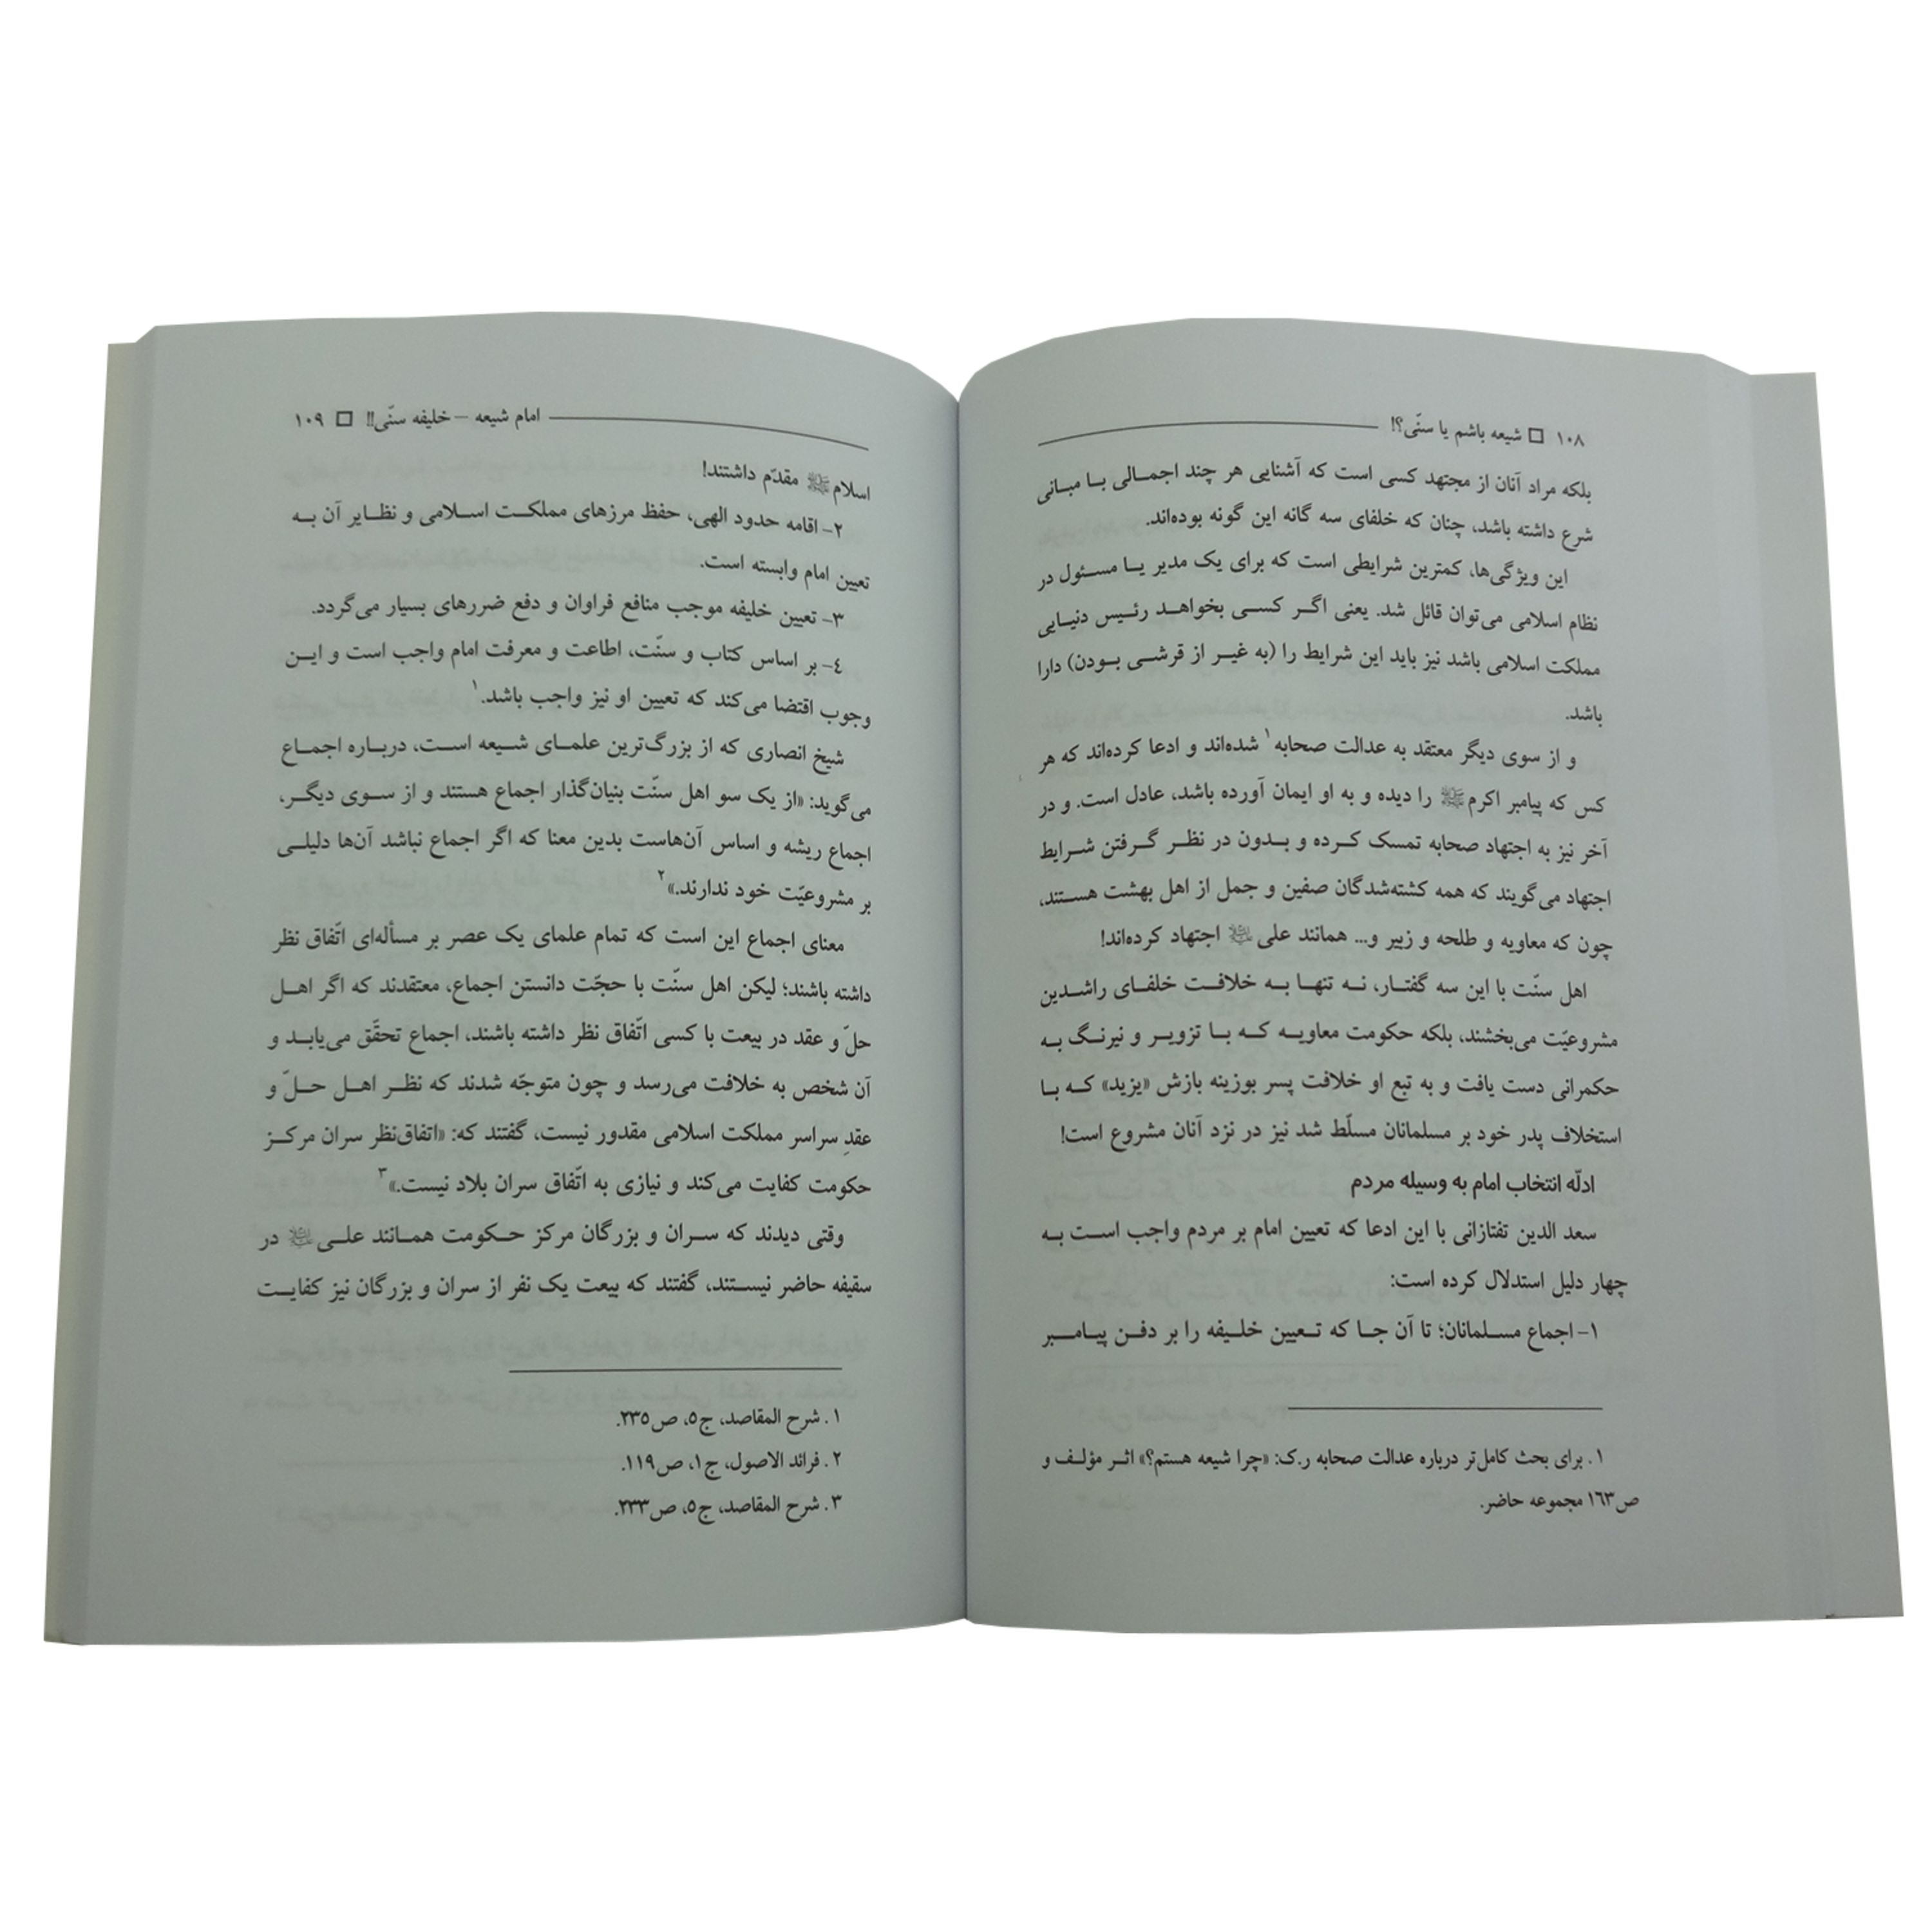 ۱۰۸ □ شیعه باشم یا سنّی؟!
بلکه مراد آنان از مجتهد کسی است که آشنایی هر چند اجمـالی بـا مبـانی
شرع داشته باشد، چنان که خلفای سه گانه این گونه بوده‌اند.
این ویژگی‌ها، کمترین شرایطی است که برای یک مدیر یـا مسـئول در
نظام اسلامی می‌توان قائل شد. یعنی اگـر کسـی بخواهـد رئـیس دنیـایی
مملکت اسلامی باشد نیز باید این شرایط را (به غیـر از قرشـی بـودن) دارا
باشد.
و از سوی دیگر معتقد به عدالت صحابه۱ شده‌اند و ادعا کرده‌اند که هر
کس که پیامبر اکرم ﷺ را دیده و به او ایمان آورده باشد، عادل است. و در
آخر نیز به اجتهاد صحابه تمسک کـرده و بـدون در نظـر گـرفتن شـرایط
اجتهاد می‌گویند که همه کشته‌شدگان صفین و جمل از اهل بهشت هسـتند،
چون که معاویه و طلحه و زبیر و... همانند علی اجتهاد کرده‌اند!
اهل سنّت با این سه گفتـار، نـه تنهـا بـه خلافـت خلفـای راشـدین
مشروعیّت می‌بخشند، بلکه حکومت معاویـه کـه بـا تزویـر و نیرنـگ بـه
حکمرانی دست یافت و به تبع او خلافت پسر بوزینه بازش «یزید» کـه بـا
استخلاف پدر خود بر مسلمانان مسلّط شد نیز در نزد آنان مشروع است!
ادلّه انتخاب امام به وسیله مردم
سعد الدین تفتازانی با این ادعا که تعیین امام بر مردم واجب اسـت بـه
چهار دلیل استدلال کرده است:
۱- اجماع مسـلمانان؛ تا آن جـا که تـعیین خلـیفه را بر دفـن پیـامـبر
۱. برای بحث کامل‌تر درباره عدالت صحابه ر.ک: «چرا شیعه هستم؟» اثـر مؤلـف و
ص۱۶۳ مجموعه حاضر.
امام شیعه – خلیفه سنّی!! □ ۱۰۹
اسلام ﷺ مقدّم داشتند!
۲- اقامه حدود الهی، حفظ مرزهای مملکـت اسـلامی و نظـایر آن بـه
تعیین امام وابسته است.
۳- تعیین خلیفه موجب منافع فراوان و دفع ضررهای بسیار می‌گردد.
٤- بر اساس کتاب و سنّت، اطاعت و معرفت امام واجب است و ایـن
وجوب اقتضا می‌کند که تعیین او نیز واجب باشد.۱
شیخ انصاری که از بزرگ‌ترین علمـای شـیعه اسـت، دربـاره اجمـاع
می‌گوید: «از یک سو اهل سنّت بنیان‌گذار اجماع هستند و از سـوی دیگـر،
اجماع ریشه و اساس آن‌هاست بدین معنا که اگر اجماع نباشد آن‌ها دلیلـی
بر مشروعیّت خود ندارند.»۲
معنای اجماع این است که تمام علمای یک عصر بر مسأله‌ای اتّفاق نظر
داشته باشند؛ لیکن اهل سنّت با حجّت دانستن اجماع، معتقدند که اگر اهـل
حلّ و عقد در بیعت با کسی اتّفاق نظر داشته باشند، اجماع تحقّق می‌یابـد و
آن شخص به خلافت می‌رسد و چون متوجّه شدند که نظـر اهـل حـلّ و
عقدِ سراسر مملکت اسلامی مقدور نیست، گفتند که: «اتفاق‌نظر سران مرکـز
حکومت کفایت می‌کند و نیازی به اتّفاق سران بلاد نیست.»۳
وقتی دیدند که سـران و بزرگان مرکز حـکومت همـانند علـی در
سقیفه حاضر نیسـتند، گفتند که بیعت یک نفر از سران و بزرگان نیز کفایـت
۱. شرح المقاصد، ج۵، ص۲۳۵.
۲. فرائد الاصول، ج۱، ص۱۱۹.
۳. شرح المقاصد، ج۵، ص۲۳۳.